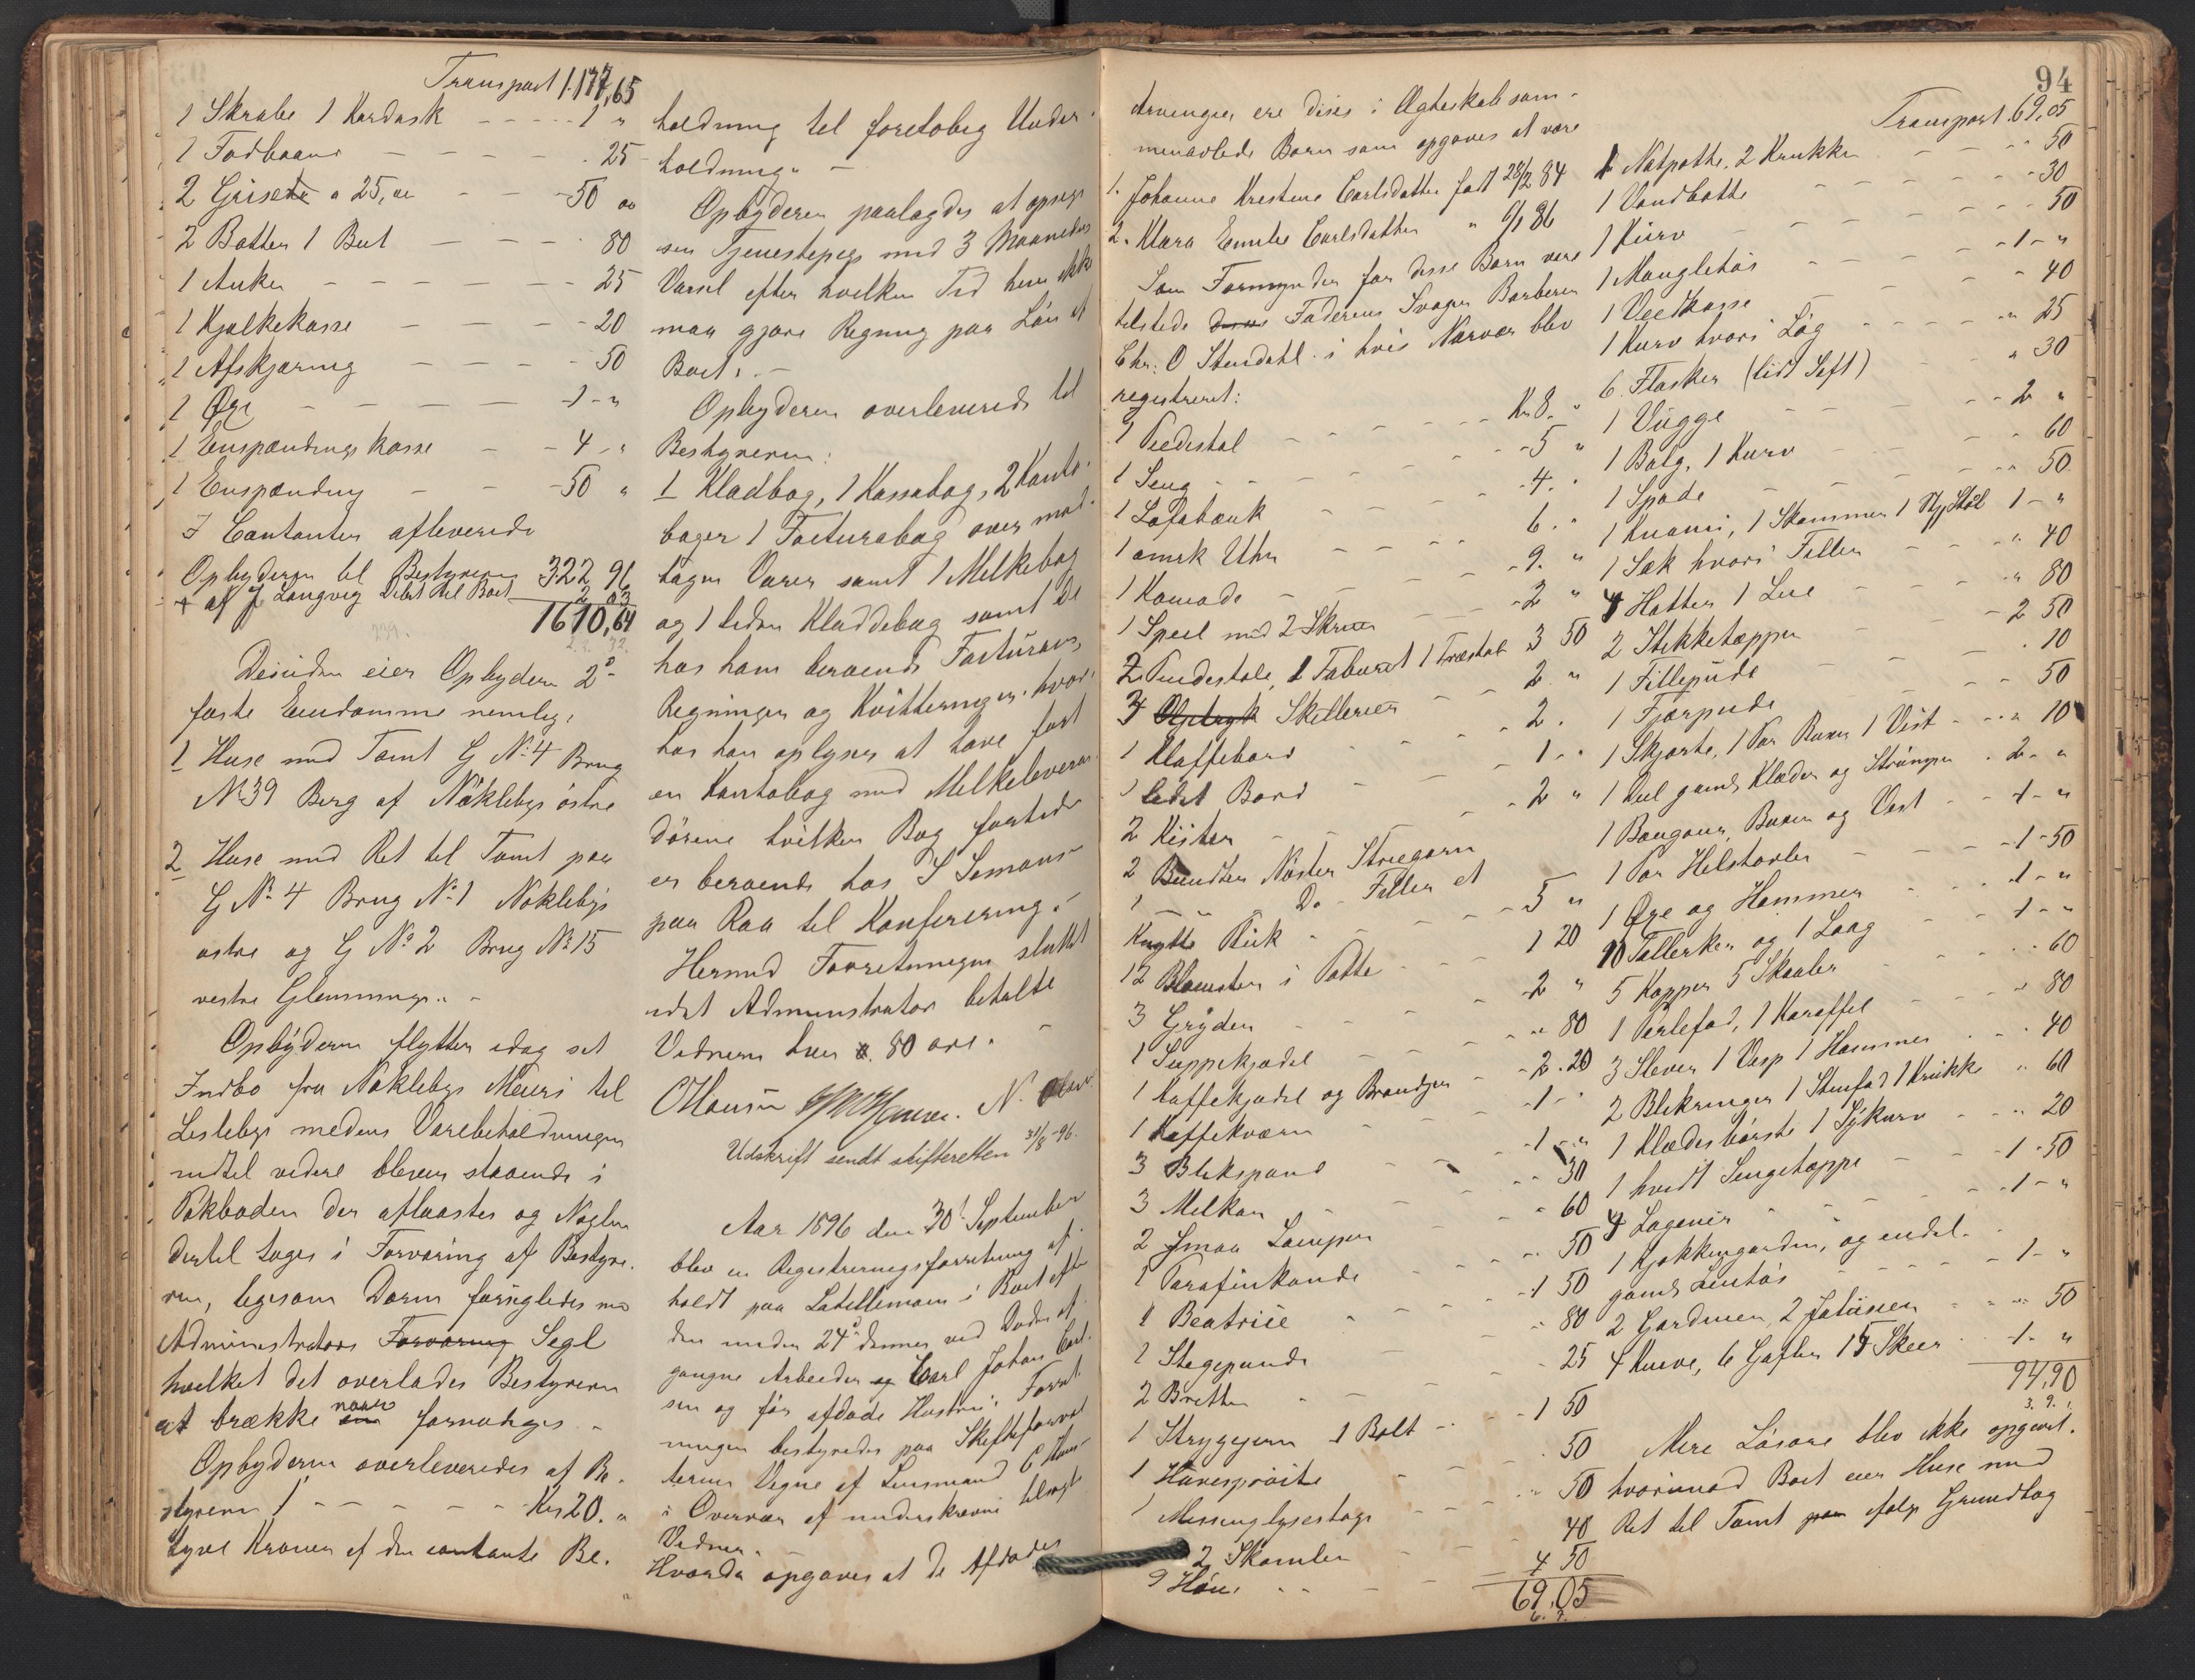 Transport 1.177,65
1 Skrabe 1 Kardask - - - - - 1 "
1 Fodbaand - - - - 25
2 Grisetr a 25,øre - - - 50 øre
2 Bøtter 1 But - - - 80
1 Anker - - - - - - 25
1 Kjælkekasse - - - - 20
1 Afskjæring - - - - 50
1 Øxe - - - - - 1 - "
1 Enspændings kasse - - 4 - "
1 Enspænding - - - 50 "
I Contanter afleverede
Opbyderen til Bestyreren 322 96
+ af J Langvig Debt til Boet 2 03
1610,64
Desuden eier Opbyderen 2de
faste Eiendomme nemlig:
1 Huse med Tomt G No 4 Brug
No 39 Berg af Nøkleby østre
2 Huse med Ret til Tomt paa
G No 4 Brug No 1 Nøkleby
østre og G No 2 Brug No 15
vestre Glemminge. -
Opbyderen flytter idag sit
Indbo fra Nøkleby Meieri til
Lisleby medens Varebeholdningen
indtil videre bleven staaende i
Pakboden der aflaastes og Nøglen
dertil toges i Forvaring af Bestyre-
ren, ligesom Døren forsegledes med
Administrators Forvaring Segl
hvilket det overlades Bestyreren
at brække naar fornødiges. -
Opbyderen overleveredes af Be-
styreren / - - - - - Kr 20. "
tyve Kroner af den contante Be-
holdning til foreløbig Under-
holdning. -
Opbyderen paalagdes at opsige
sin Tjenestepige med 3 Maaneders
Varsel efter hvilken Tid hun ikke
maa gjøre Regning paa Løn af
Boet. -
Opbyderen overleverede til
Bestyreren:
1 Kladbog, 1 Kassabog, 2 Konto-
bøger 1 Facturabog over mod-
tagne Varer samt 1 Melkebog
og 1 liden Kladdebog samt de
hos ham beroende Facturaer,
Regninger og Kvitteringer. hvor-
hos han oplyser at have ført
en Kontobog med Melkeleveran-
dørene hvilken Bog fortiden
er beroende hos S Simons-
paa Raa til Konferering. -
Hermed Forretningen sluttet
idet Administrator betalte
Vidnerne hver 80 øre. -
C Hansen N. Olsen
Udskrift sendt skifteretten 31/8-96.
Aar 1896 den 30' September
blev en Registreringsforretning af-
holdt paa Labellemoen i Boet efter
den under 24de dennes ved Døden af-
gangne Arbeider Carl Johan Carl-
sen og før afdøde Hustru. Forret-
ningen bestyredes paa Skifteforval-
terens Vegne af Lensmand C Han-
i Overvær af underskrevne tilsagte
Vidner. -
Hvorda opgaves at de Afdødes
94
Arvinger, ere disses i Ægteskab sam-
menavlede Børn som opgaves at være
1. Johanne Kristine Carlsdatter født 28/2 84
2. Klara Emilie Carlsdatter " 9/1 86
Som Formynder for disse Børn var
tilstede deres Faderens Svoger Barberer
Chr: O Stendahl i hvis Nærvær blev
registreret:
1 Piedistal - - - - - Kr 8. "
1 Seng - - - - - 5 "
1 Sofabænk - - - - 4. "
1 amrk Uhr - - - - 6. "
1 Komode - - - - 9. "
1 Speil med 2 Skruer - - 2 "
2 Pindestole, 1 Taburet 1 Træstol 3 50
3 Olietryk Skillerier - - 2. "
1 Klaffebord - - - - 2.
1 lidet Bord - - - 1 - "
2 Kister - - - - - 2 "
2 Bundter Nøster Striegarn
1 - " - Do - Filler et
Knytte Skik - - - - 5 "
12 Blomster i Potte - - - 1 20
3 Gryder - - - - - 2 "
1 Suppekjedel - - - " 80
1 Kaffekjedel og Brænder - 2. 20
1 Kaffekværn - - - - 1 - "
3 Blikspand - - - - 1 - "
3 Melkar - - - - - 30
2 smaa Lamper - - - " 60
1 Parafinkande - - - " 50
1 Beatrise - - - - - 1 50
1 Stegepande - - - - " 80
2 Bretter - - - - - 25
1 Strygejern 1 Bolt - - - 1 50
1 Havesprøite - - - - 50
1 Messinglysestage - - - " 50
2 Skamler - - - - 40
9 Høns - - - - - 4 50
69,05
Transport 69,05
1 Natpotte, 2 Krukker - - - 50
1 Vandbøtte - - - - - 30
1 Kurv - - - - - - - 50
1 Mangletøi - - - - - 1 - "
1 Vedkasse - - - - - 40
1 Kurv hvori Løg - - - - " 25
6 Flasker (lidt Saft) - - - " 30
1 Vugge - - - - - 2 "
1 Balg, 1 Kurv - - - - 60
1 Spade - - - - - " 50
1 Knami, 1 Skammer 1 Stk Stol 1 - "
1 Sæk hvori Filler - - - " 40
4 Hatter 1 Lue - - - " 80
2 Stikketæpper - - - 2 50
1 Fillepude - - - - . 10
1 Fjærpude - - - - - 50
1 Skjorte, 1 Par Buxer 1 Vest - - - " 10
1 Del gamle Klæder og Strømper - 2 - "
1 Bongour, Buxer og Vest - - 1 - "
1 Par Helstøvler - - - - 1 - 50
1 Øxe og Hammer - - - 1 - "
10 Tallerker og 1 Laag - - - 1 - "
5 Kopper 5 Skaaler - - - . 60
1 Perlefad, 1 Karaffel - - - " 80
3 Slever 1 Visp 1 Hammer - - . 40
2 Blikringer 1 Stenfad 1 Krukke " 60
1 Klædesbørste 1 Sykurv - - " 20
1 hvidt Sengetæppe - - - 1 - 50
4 Lagener - - - - - 1 - "
1 Kjøkkengardin, og endel-
gamle Lintøi - - - - - 1 - "
2 Gardiner, 2 Jalusier - - " 50
4 Knive, 6 Gafler 15 Skeer - - 1 - "
94,90
Mere Løsøre blev ikke opgivet.
hvorimod Boet eier Huse med
Ret til Tomt paa ifølge Grundtog